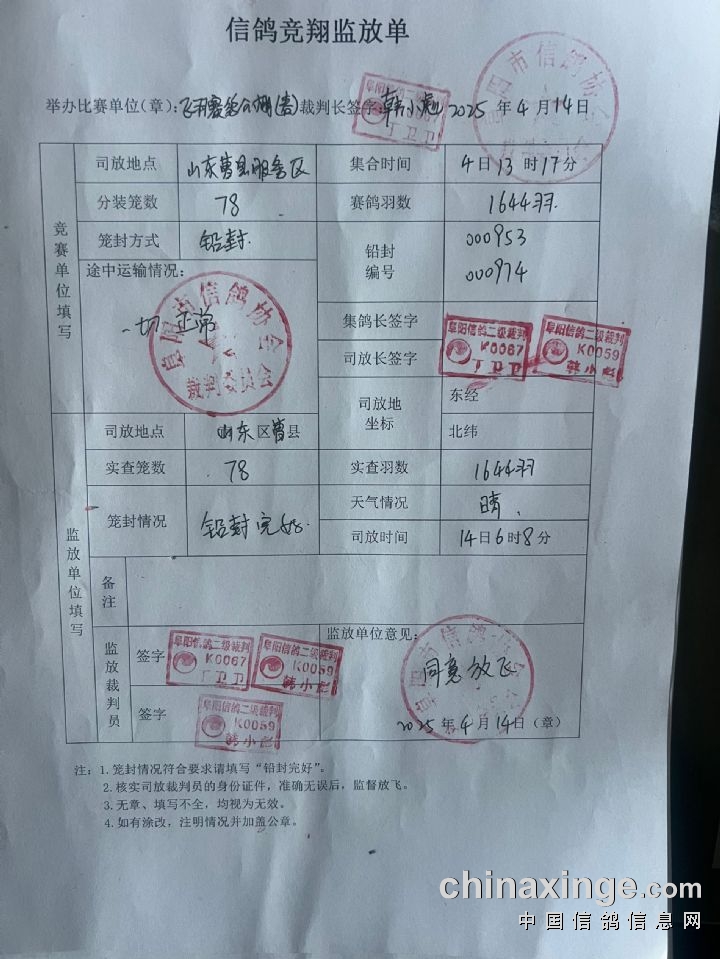 信鸽竞翔监放单
举办比赛单位(章): 裁判长签字: 韩小彪 2025 年 4 月 14 日
司放地点 山东曹县服务区 集合时间 4日13时17分
分装笼数 78 赛鸽羽数 1644羽
笼封方式 铅封 铅封编号 000953 000974
竞赛单位填写
途中运输情况: 一切正常
集鸽长签字 阜阳信鸽二级裁判 K0067 丁卫卫 阜阳信鸽二级裁判 K0059 韩小彪
司放长签字
司放地坐标 东经
北纬
司放地点 山东区曹县
实查笼数 78 实查羽数 1644羽
笼封情况 铅封完好. 天气情况 晴.
司放时间 14日6时8分
监放单位填写
备注
监放裁判员 签字 阜阳信鸽二级裁判 K0067 丁卫卫 阜阳信鸽二级裁判 K0059 韩小彪
签字 阜阳信鸽二级裁判 K0059 韩小彪
监放单位意见:
同意放飞
2025 年 4 月 14 日 (章)
阜阳市信鸽协会
裁判委员会
注: 1.笼封情况符合要求请填写“铅封完好”。
2.核实司放裁判员的身份证件，准确无误后，监督放飞。
3.无章、填写不全，均视为无效。
4.如有涂改，注明情况并加盖公章。
chinaxinge.com
中国信鸽信息网